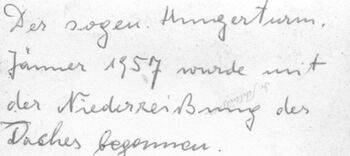 Der sogen. Hungerturm.
Jänner 1957 wurde mit
der Niederreißung des
Daches begonnen.